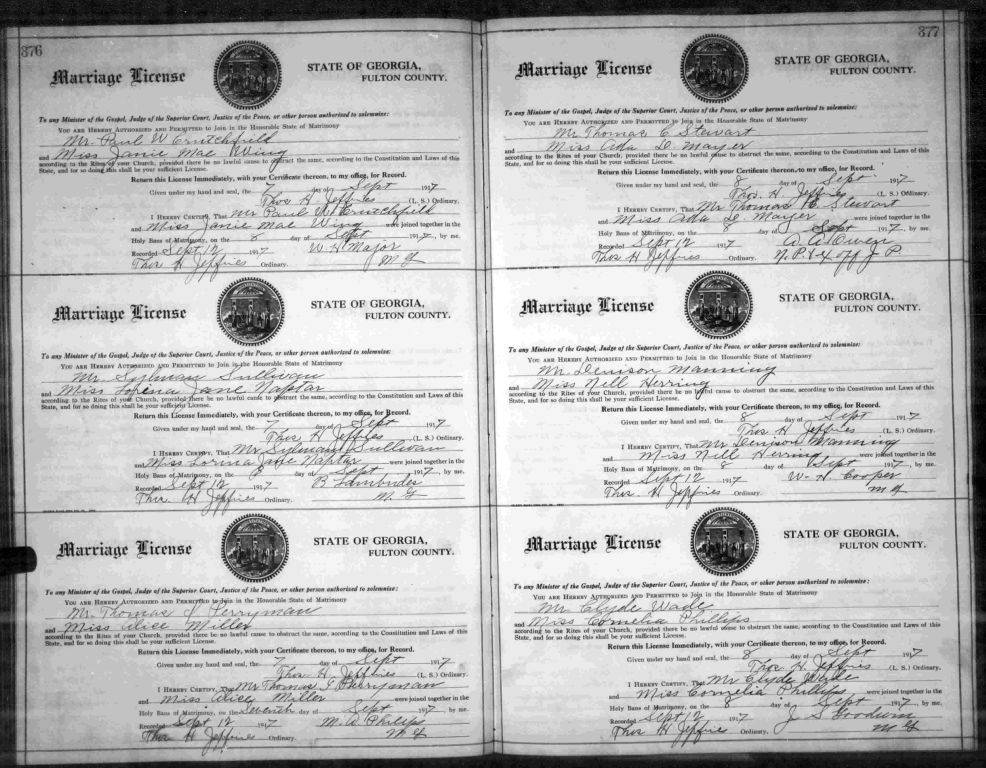 376
Marriage License
STATE OF GEORGIA,
FULTON COUNTY.
To any Minister of the Gospel, Judge of the Superior Court, Justice of the Peace, or other person authorized to solemnize:
YOU ARE HEREBY AUTHORIZED AND PERMITTED to Join in the Honorable State of Matrimony
Mr. Paul W Crutchfield
and Miss Janie Mae Wing
according to the Rites of your Church, provided there be no lawful cause to obstruct the same, according to the Constitution and Laws of this
State, and for so doing this shall be your sufficient License.
Return this License Immediately, with your Certificate thereon, to my office, for Record.
Given under my hand and seal, the 7 day of Sept 1917
Thos H. Jeffries (L. S.) Ordinary.
I HEREBY CERTIFY, That Mr Paul W Crutchfield
and Miss Janie Mae Wing were joined together in the
Holy Bans of Matrimony, on the 8 day of Sept 1917, by me.
Recorded Sept 12 1917 W. H Major
Thos H Jeffries Ordinary. M G
Marriage License
STATE OF GEORGIA,
FULTON COUNTY.
To any Minister of the Gospel, Judge of the Superior Court, Justice of the Peace, or other person authorized to solemnize:
YOU ARE HEREBY AUTHORIZED AND PERMITTED to Join in the Honorable State of Matrimony
Mr. Sullivan
and Miss Jane Naptar
according to the Rites of your Church, provided there be no lawful cause to obstruct the same, according to the Constitution and Laws of this
State, and for so doing this shall be your sufficient License.
Return this License Immediately, with your Certificate thereon, to my office, for Record.
Given under my hand and seal, the 7 day of Sept 1917
Thos H Jeffries (L. S.) Ordinary.
I HEREBY CERTIFY, That Mr Sullivan
and Miss Jane Naptar were joined together in the
Holy Bans of Matrimony, on the 8 day of Sept 1917, by me.
Recorded Sept 12 1917 B Lambrides
Thos H Jeffries Ordinary. M. G
Marriage License
STATE OF GEORGIA,
FULTON COUNTY.
To any Minister of the Gospel, Judge of the Superior Court, Justice of the Peace, or other person authorized to solemnize:
YOU ARE HEREBY AUTHORIZED AND PERMITTED to Join in the Honorable State of Matrimony
Mr. Thomas J Perryman
and Miss Alice Miller
according to the Rites of your Church, provided there be no lawful cause to obstruct the same, according to the Constitution and Laws of this
State, and for so doing this shall be your sufficient License.
Return this License Immediately, with your Certificate thereon, to my office, for Record.
Given under my hand and seal, the 7 day of Sept 1917
Thos H. Jeffries (L. S.) Ordinary.
I HEREBY CERTIFY, That Mr Thomas J Perryman
and Miss Alice Miller were joined together in the
Holy Bans of Matrimony, on the Seventh day of Sept 1917, by me.
Recorded Sept 12 1917 M. A Philips
Thos H Jeffries Ordinary. M G
377
Marriage License
STATE OF GEORGIA,
FULTON COUNTY.
To any Minister of the Gospel, Judge of the Superior Court, Justice of the Peace, or other person authorized to solemnize:
YOU ARE HEREBY AUTHORIZED AND PERMITTED to Join in the Honorable State of Matrimony
Mr Thomas C Stewart
and Miss Ada D. Mayer
according to the Rites of your Church, provided there be no lawful cause to obstruct the same, according to the Constitution and Laws of this
State, and for so doing this shall be your sufficient License.
Return this License Immediately, with your Certificate thereon, to my office, for Record.
Given under my hand and seal, the 8 day of Sept 1917
Thos. H. Jeffries (L. S.) Ordinary.
I HEREBY CERTIFY, That Mr Thomas C. Stewart
and Miss Ada D. Mayer were joined together in the
Holy Bans of Matrimony, on the 8 day of Sept 1917, by me.
Recorded Sept 12 1917 A. A. Owen
Thos H Jeffries Ordinary. N. P. & Ex off J. P.
Marriage License
STATE OF GEORGIA,
FULTON COUNTY.
To any Minister of the Gospel, Judge of the Superior Court, Justice of the Peace, or other person authorized to solemnize:
YOU ARE HEREBY AUTHORIZED AND PERMITTED to Join in the Honorable State of Matrimony
Mr. Denison Manning
and Miss Nell Herring
according to the Rites of your Church, provided there be no lawful cause to obstruct the same, according to the Constitution and Laws of this
State, and for so doing this shall be your sufficient License.
Return this License Immediately, with your Certificate thereon, to my office, for Record.
Given under my hand and seal, the 8 day of Sept 1917
Thos H Jeffries (L. S.) Ordinary.
I HEREBY CERTIFY, That Mr Denison Manning
and Miss Nell Herring were joined together in the
Holy Bans of Matrimony, on the 8 day of Sept 1917, by me.
Recorded Sept 12 1917 W. H. Cooper
Thos. H Jeffries Ordinary. M G
Marriage License
STATE OF GEORGIA,
FULTON COUNTY.
To any Minister of the Gospel, Judge of the Superior Court, Justice of the Peace, or other person authorized to solemnize:
YOU ARE HEREBY AUTHORIZED AND PERMITTED to Join in the Honorable State of Matrimony
Mr Clyde Wade
and Miss Cornelia Phillips
according to the Rites of your Church, provided there be no lawful cause to obstruct the same, according to the Constitution and Laws of this
State, and for so doing this shall be your sufficient License.
Return this License Immediately, with your Certificate thereon, to my office, for Record.
Given under my hand and seal, the 8 day of Sept 1917
Thos H. Jeffries (L. S.) Ordinary.
I HEREBY CERTIFY, That Mr Clyde Wade
and Miss Cornelia Phillips were joined together in the
Holy Bans of Matrimony, on the 8 day of Sept 1917, by me.
Recorded Sept 12 1917 J S Goodwin
Thos H Jeffries Ordinary. M G